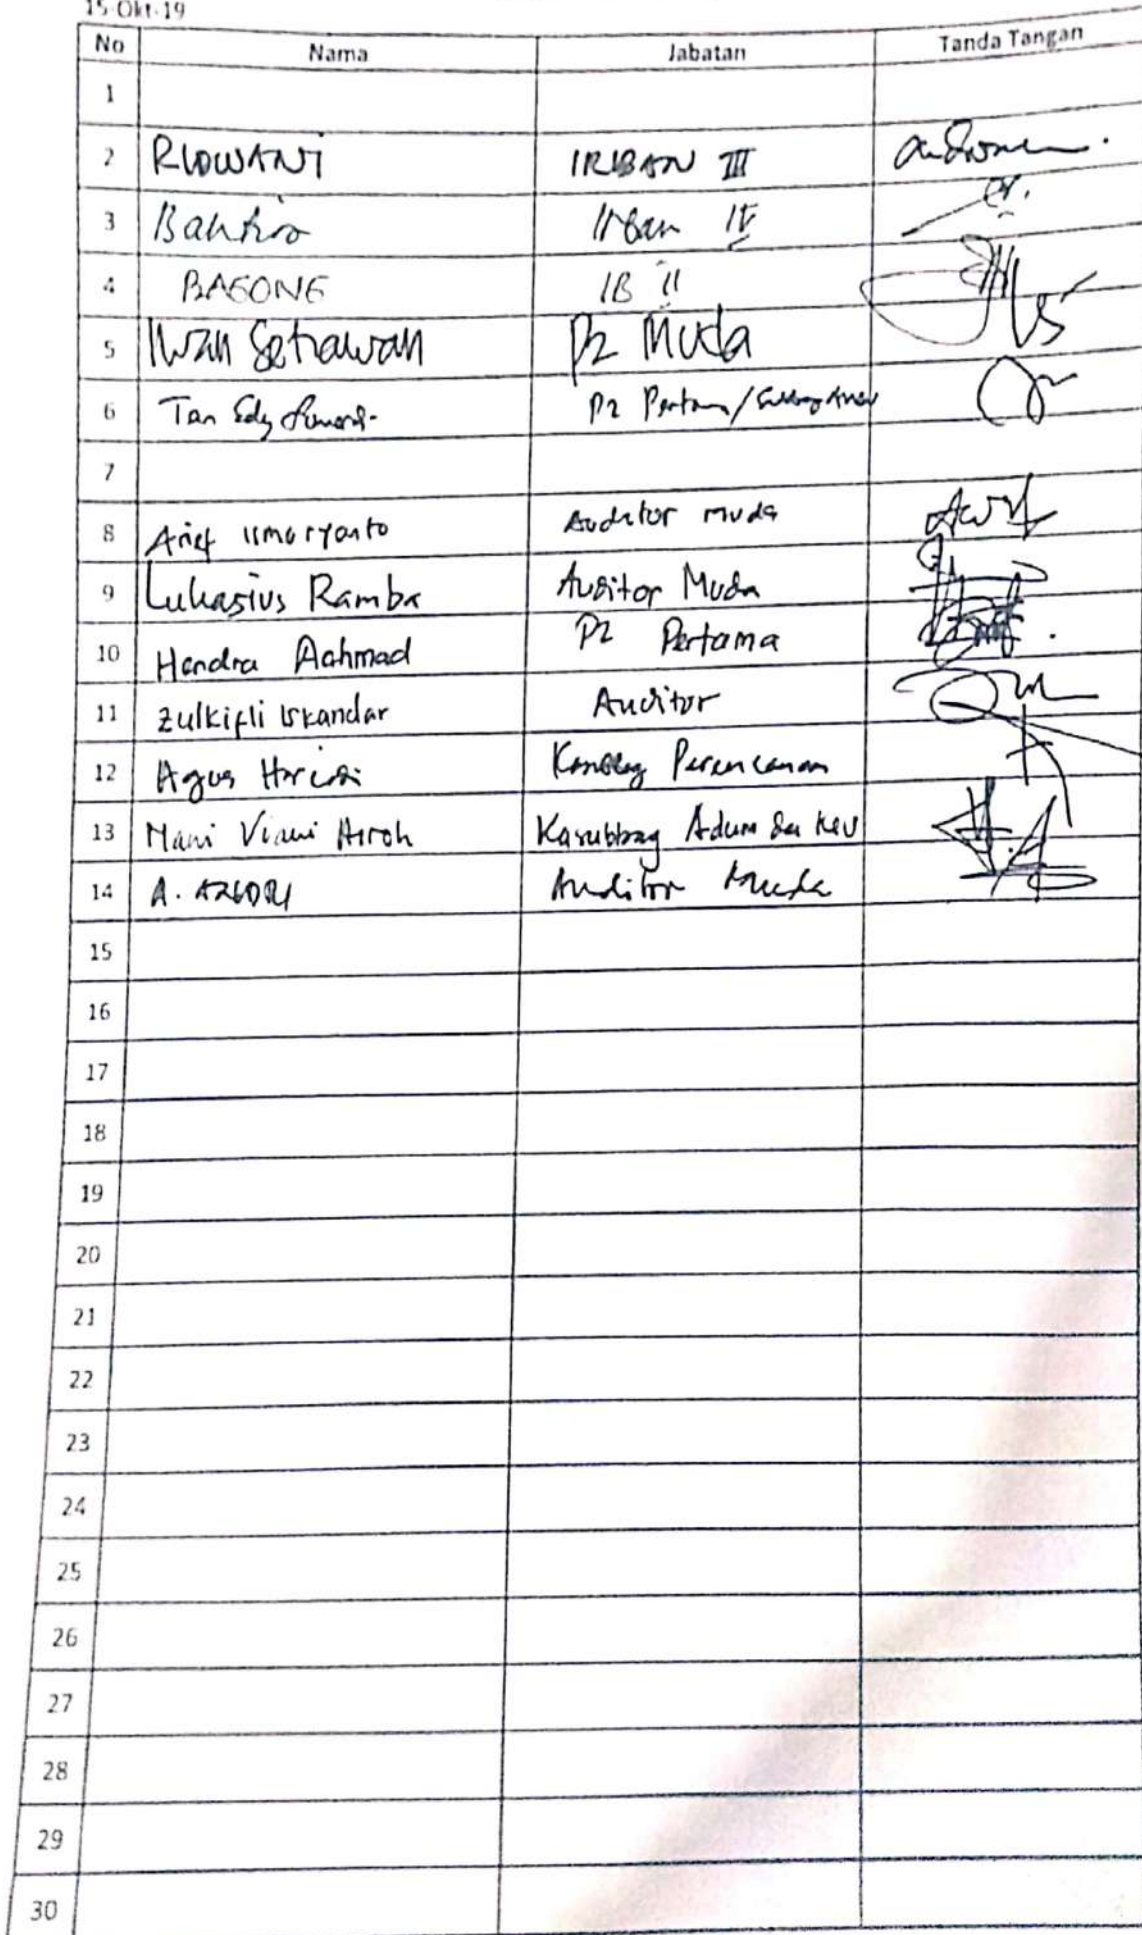 15-Okt-19
No Nama Jabatan Tanda Tangan
1
2 RIDWANI IRBAN III
3 Bahtiar Irban IV
4 BAGONG IB II
5 Iwan Setiawan P2 Muda
6 Tan Edy P2 Pertama/
7
8 Arief Auditor muda
9 Lukasius Ramba Auditor Muda
10 Hendra Achmad P2 Pertama
11 Zulkifli Iskandar Auditor
12 Agus Kasubbag Perencanaan
13 Viani Kasubbag Adum dan Keu
14 A. Auditor Muda
15
16
17
18
19
20
21
22
23
24
25
26
27
28
29
30